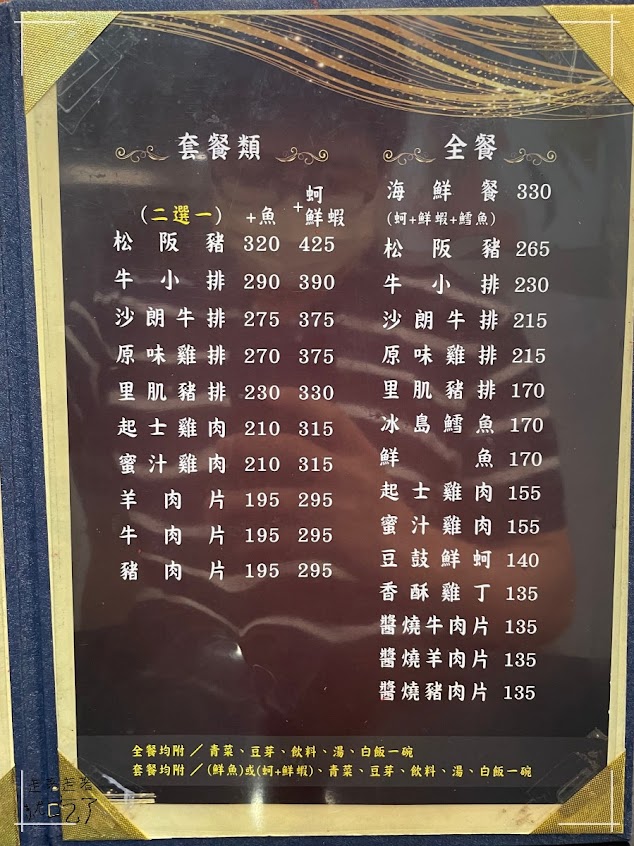 套餐類
(二選一) +魚 +蚵鮮蝦
松阪豬 320 425
牛小排 290 390
沙朗牛排 275 375
原味雞排 270 375
里肌豬排 230 330
起士雞肉 210 315
蜜汁雞肉 210 315
羊肉片 195 295
牛肉片 195 295
豬肉片 195 295
全餐
海鮮餐 330
(蚵+鮮蝦+鱈魚)
松阪豬 265
牛小排 230
沙朗牛排 215
原味雞排 215
里肌豬排 170
冰島鱈魚 170
鮮魚 170
起士雞肉 155
蜜汁雞肉 155
豆鼓鮮蚵 140
香酥雞丁 135
醬燒牛肉片 135
醬燒羊肉片 135
醬燒豬肉片 135
全餐均附／青菜、豆芽、飲料、湯、白飯一碗
套餐均附／(鮮魚)或(蚵+鮮蝦)、青菜、豆芽、飲料、湯、白飯一碗
走著走著
就吃了